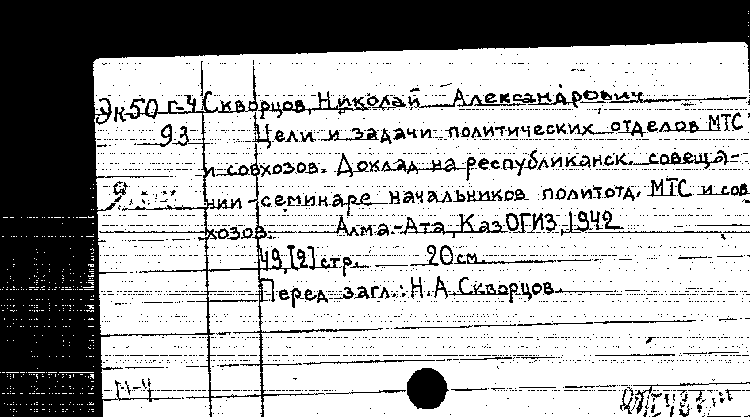 Эк50 г-4 Скворцов, Николай Александрович
93 Цели и задачи политических отделов МТС
и совхозов. Доклад на республиканск. совеща-
нии-семинаре начальников политотд. МТС и сов
хозов. Алма-Ата, КазОГИЗ, 1942
49,[2] стр. 20 см.
Перед загл.: Н.А.Скворцов.
П-4